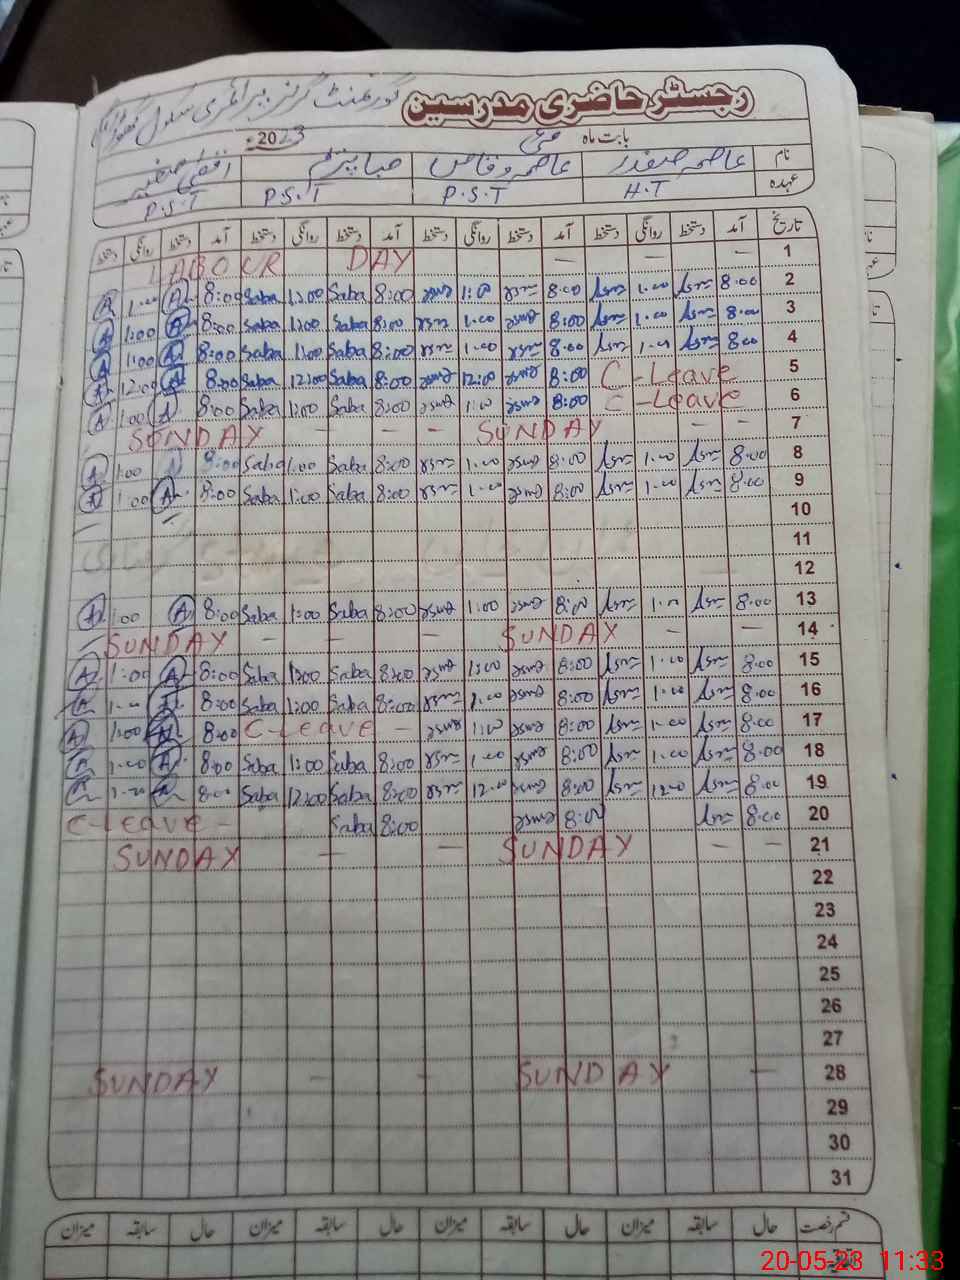 رجسٹر حاضری مدرسین گورنمنٹ گرلز پرائمری سکول
بابت ماہ مئی 2023ء
نام عاصمہ صفدر عاصمہ وقاص صبا پرنم اقصیٰ صغیر
عہدہ H.T P.S.T P.S.T P.S.T
تاریخ آمد دستخط روانگی دستخط آمد دستخط روانگی دستخط آمد دستخط روانگی دستخط آمد دستخط روانگی دستخط
1 — — — LABOUR DAY
2 8:00 1.00 8:00 1:00 8:00 Saba 1:00 Saba 8:00 A 1.00 A
3 8:00 1.00 8:00 1.00 8:00 Saba 1:00 Saba 8:00 A 1:00 A
4 8:00 1.00 8.00 1.00 8:00 Saba 1:00 Saba 8:00 A 1:00 A
5 C-Leave 8:00 12:00 8:00 Saba 12:00 Saba 8:00 A 12:00 A
6 C-Leave 8:00 1:00 8:00 Saba 1:00 Saba 8:00 A 1:00 A
7 — — SUNDAY — — — SUNDAY
8 8.00 1.00 8:00 1.00 8:00 Saba 1.00 Saba 8:00 1:00 A
9 8:00 1.00 8:00 1.00 8:00 Saba 1:00 Saba 8:00 A 1:00 A
10
11
12
13 8:00 1.00 8:00 1:00 8:00 Saba 1:00 Saba 8:00 A 1:00 A
14 — — SUNDAY — — — SUNDAY
15 8:00 1.00 8:00 1:00 8:00 Saba 1:00 Saba 8:00 A 1:00 A
16 8:00 1.00 8:00 1.00 8:00 Saba 1:00 Saba 8:00 A 1.00 A
17 8:00 1.00 8:00 1:00 — C-Leave 8:00 A 1:00 A
18 8:00 1.00 8:00 1.00 8:00 Saba 1:00 Saba 8:00 A 1.00 A
19 8:00 12.00 8:00 12.00 8:00 Saba 12:00 Saba 8:00 A A
20 8:00 8:00 8:00 Saba C-Leave -
21 — — SUNDAY — — SUNDAY
22
23
24
25
26
27
28 — SUNDAY — — SUNDAY
29
30
31
قسم رخصت حال سابقہ میزان حال سابقہ میزان حال سابقہ میزان حال سابقہ میزان
20-05-23 11:33